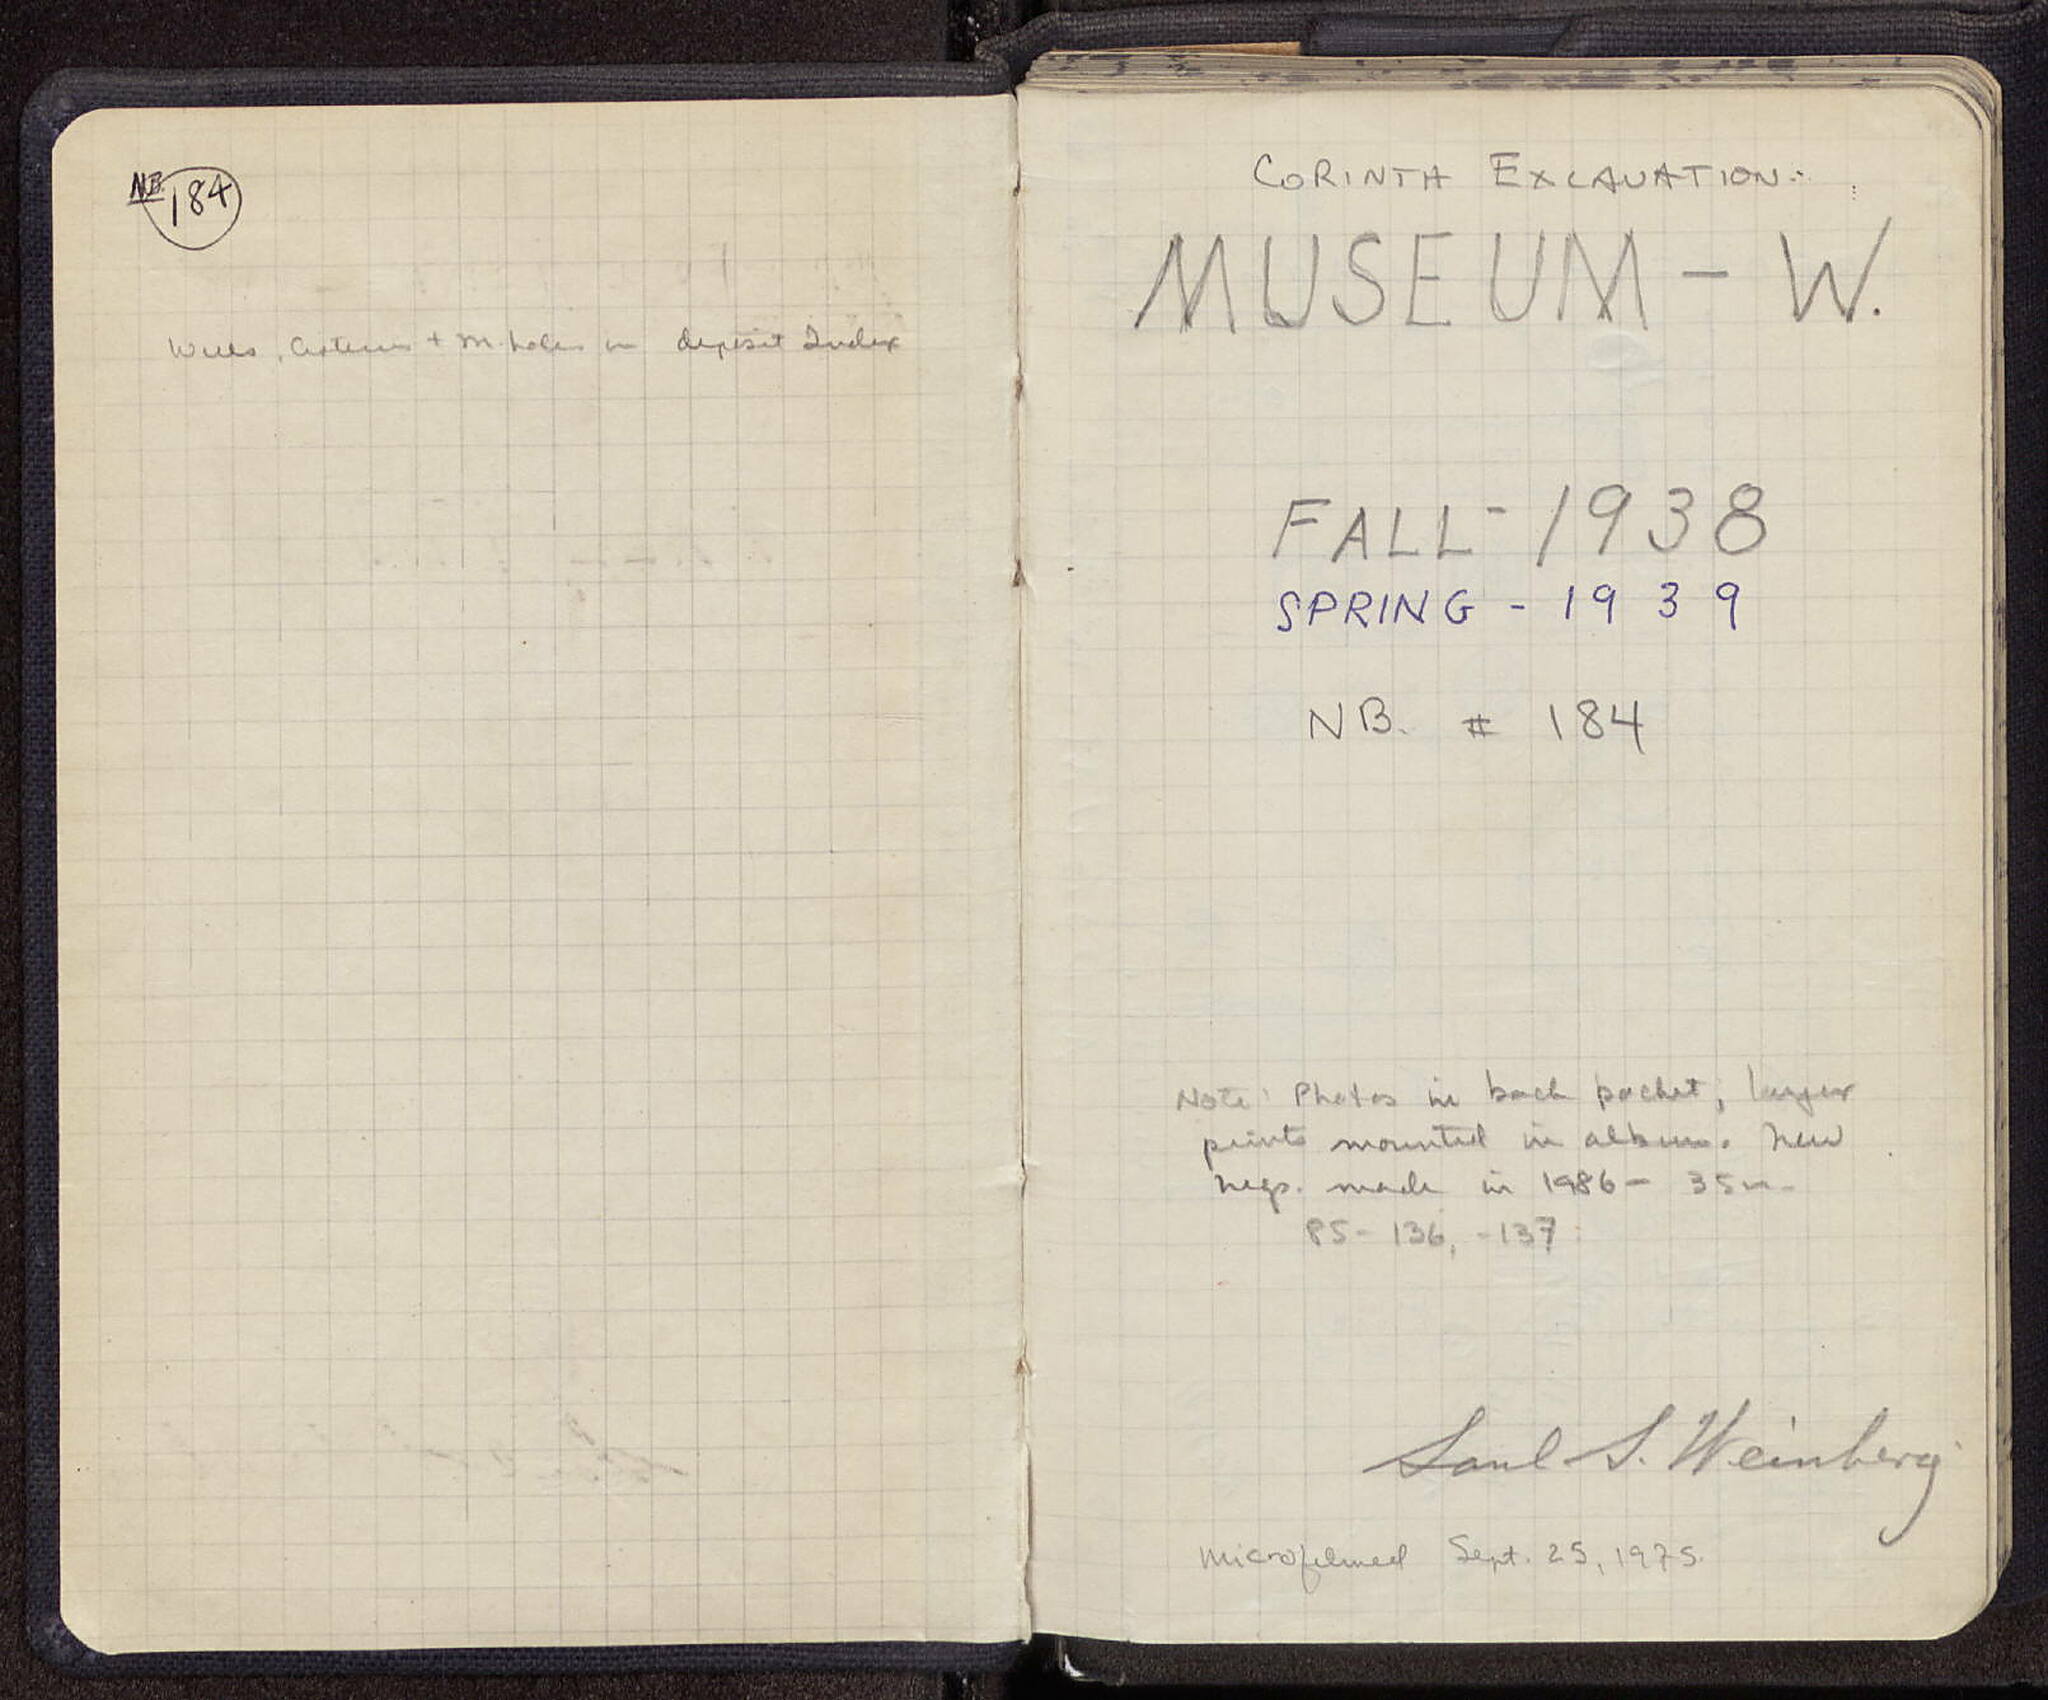 NB.
184
Wells, Cisterns + M.holes in deposit Index
CORINTH EXCAVATION:
MUSEUM - W.
FALL - 1938
SPRING - 1939
NB. # 184
Note: Photos in back pocket; larger
prints mounted in album. New
negs. made in 1986 - 35m-
85-136, -137
Saul S. Weinberg
Microfilmed Sept. 25, 1975.